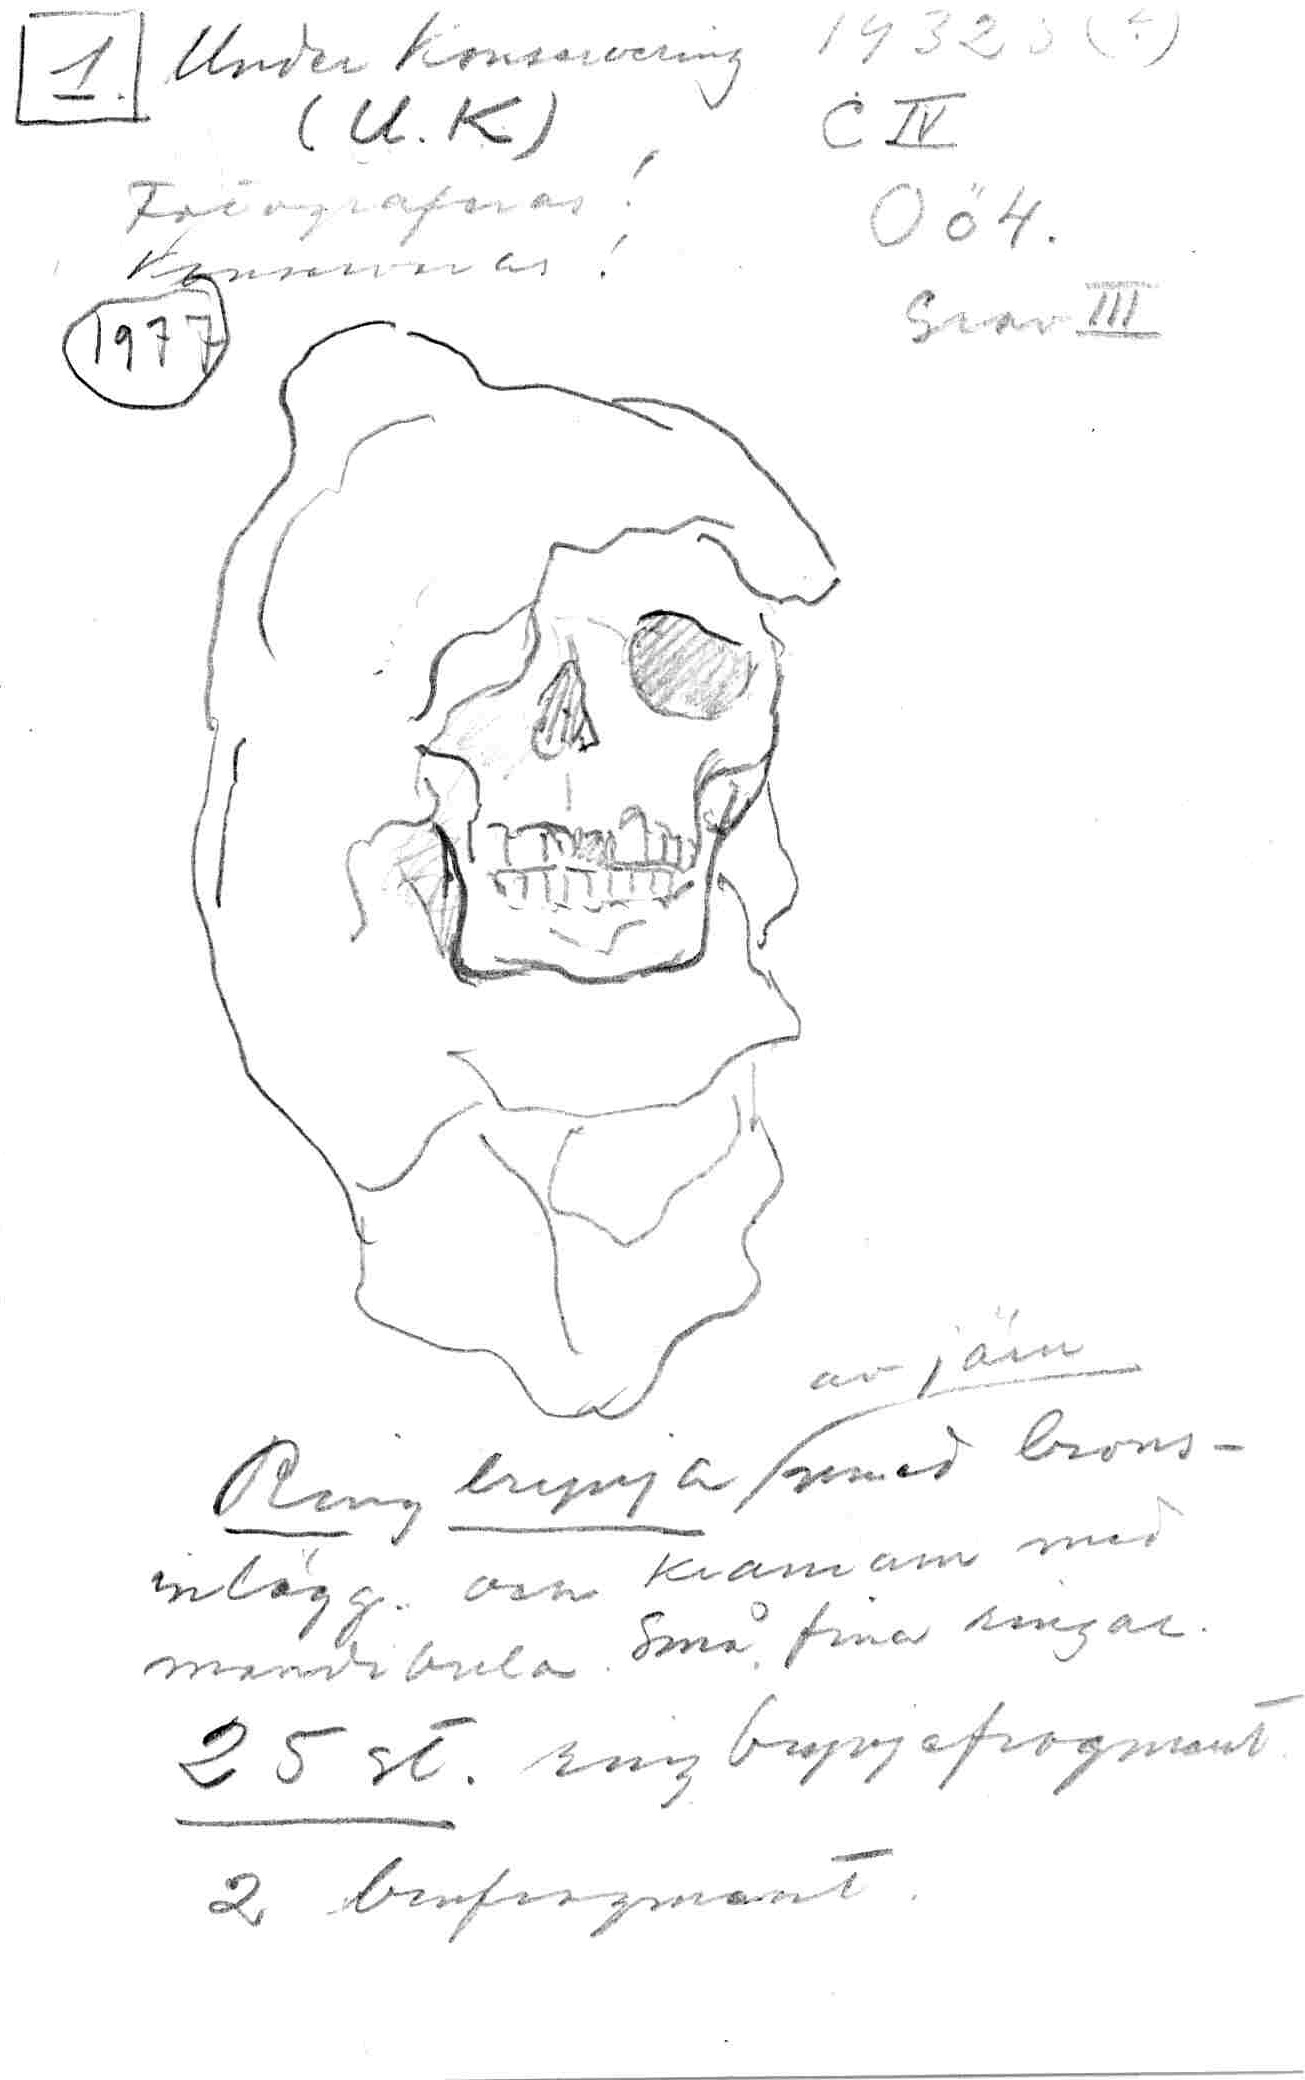 1. Under Konservering 1932
(U.K) C IV
Fotograferas! Oö4.
Konserveras!
Grav III
1977
av järn
Ringbrynja med brons-
inlägg. och kranium med
mandibula. Små, fina ringar.
25 st. ringbrynjefragment.
2 benfragment.